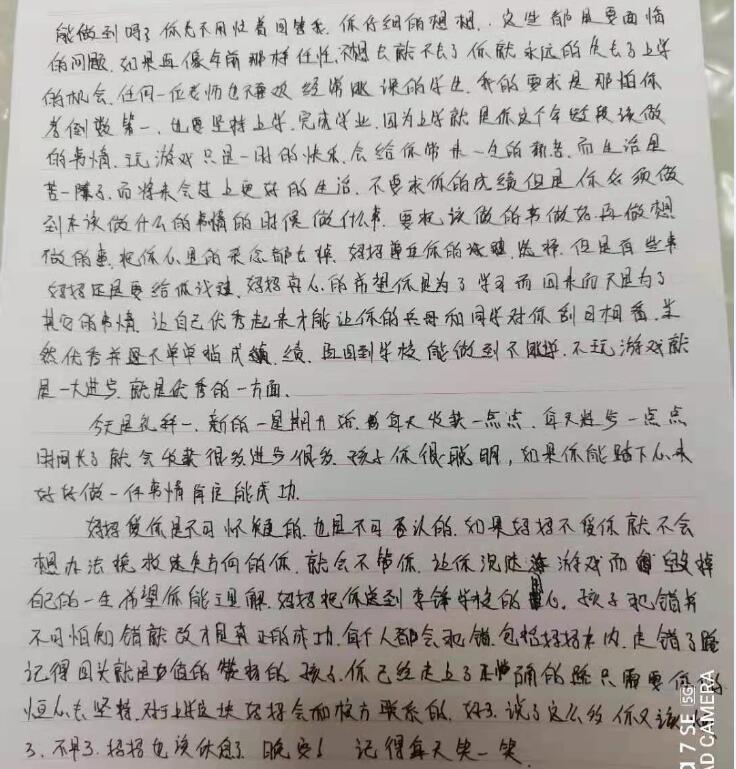 能做到吗？你先不用忙着回答我.你仔细的想想.这些都是要面临
的问题.如果再像年前那样任性.不想去就不去了你就永远的失去了上学
的机会.任何一位老师也不喜欢经常逃课的学生.我的要求是那怕你
考倒数第一.也要坚持上学.完成学业.因为上学就是你这个年龄段该做
的事情.玩游戏只是一时的快乐.会给你带来一生的新苦.而生活是
苦一阵了.而将来会过上更好的生活.不要求你的成绩但是你必须做
到在该做什么的事情的时候做什么事.要把该做的事做好.再做想
做的事.把你心里的杂念都去掉.妈妈尊重你的决定.选择.但是有些事
妈妈还是要给你谈谈.妈妈真心的希望你是为了学习而回来而不是为了
其它的事情.让自己优秀起来才能让你的父母和同学对你刮目相看.当
然优秀并还不单单指成绩.再回到学校能做到不逃学.不玩游戏就
是一大进步.就是优秀的一方面.
今天是礼拜一.新的一星期开始.每天收获一点点.每天进步一点点
时间长了就会收获很多进步很多.孩子你很聪明,如果你能踏下心来
好好做一件事情肯定能成功.
妈妈爱你是不可怀疑的.也是不可否认的.如果妈妈不爱你就不会
想办法挽救迷失方向的你.就会不管你.让你沉迷游戏而毁掉
自己的一生希望你能理解.妈妈把你送到李锋学校的用心.孩子犯错并
不可怕知错就改才是真正的成功.每个人都会犯错.包括妈妈在内.走错了路
记得回头就是值的赞扬的.孩子.你已经走上了正确的路只需要你的
恒心去坚持.对于上学这块妈妈会和校方联系的.好了.说了这么多你又该
了.不早了.妈妈也该休息了.晚安！记得每天笑一笑.
7 SE 5G
AD CAMERA